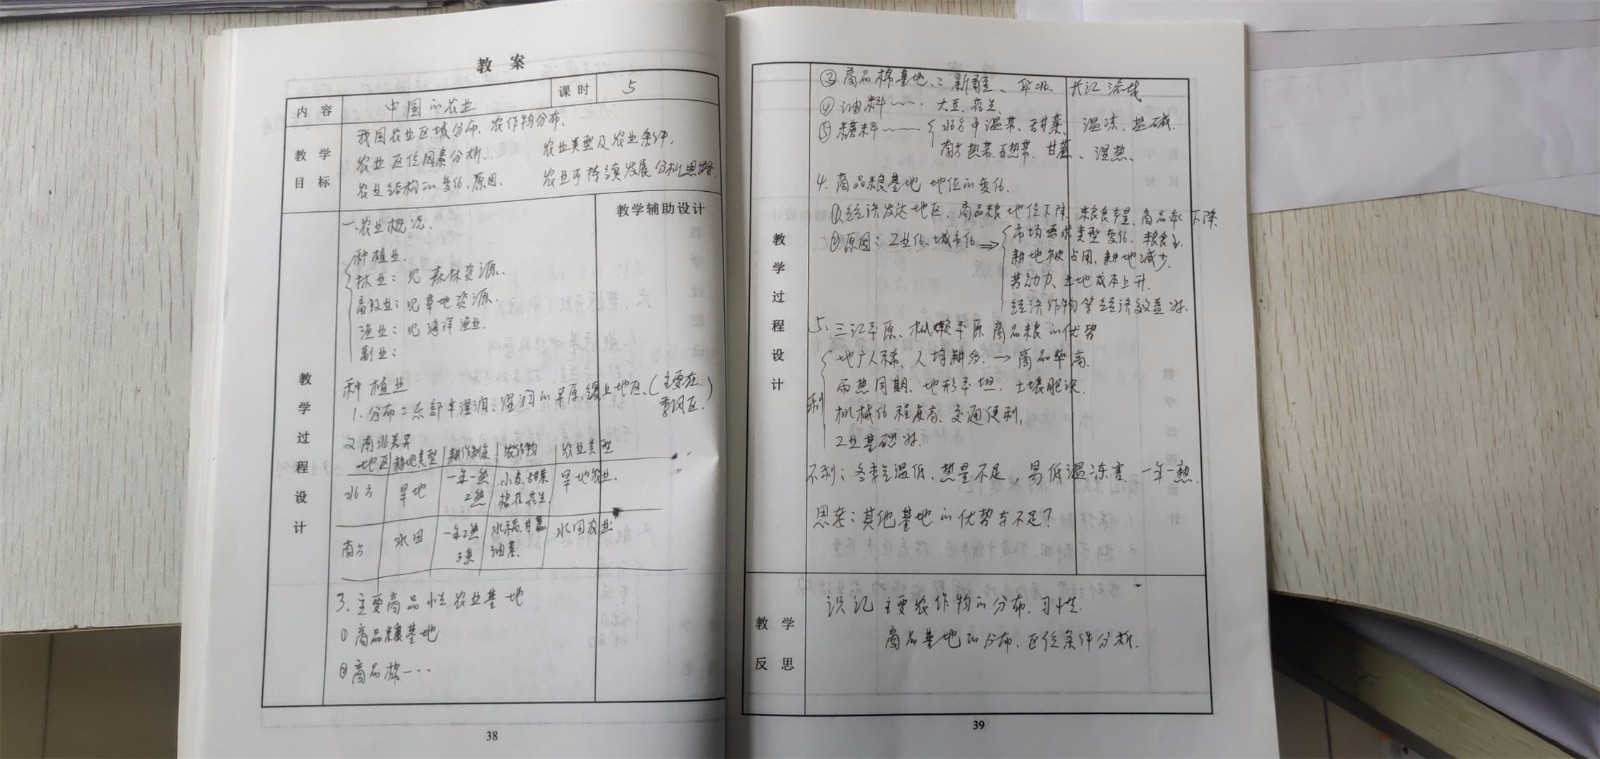 教 案
内 容 中国的农业 课 时 5
教 学 目 标
我国农业区域分布、农作物分布、
农业区位因素分析、 农业类型及农业条件,
农业结构的变化、原因、 农业可持续发展分析
教 学 过 程 设 计
教学辅助设计
一、农业概况、
种植业
林业：见森林资源、
畜牧业：见草地资源、
渔业：见海洋渔业.
副业：
种植业
1、分布：东部半湿润、湿润的平原、缓丘地区、(主要在季风区.)
2、南北差异
地区 耕地类型 耕作制度 农作物 农业类型
北方 旱地 一年一熟 二熟 小麦、甜菜 棉花、花生 旱地农业.
南方 水田 一年二熟 三熟 水稻、甘蔗 油菜. 水田农业
3、主要商品性农业基地
① 商品粮基地
② 商品棉一…
38
③ 商品棉基地：新疆、华北、长江流域
④ 油料一… 大豆、花生
⑤ 糖料一一 北方中温带、甜菜、温凉、盐碱.
南方热带、亚热带、甘蔗、湿热、
教 学 过 程 设 计
4、商品粮基地地位的变化.
①经济发达地区、商品粮地位下降、粮食产量、商品率下降
②原因：工业化、城市化⇒ 市场需求类型变化、粮食↓
耕地被占用、耕地减少.
劳动力、土地成本上升.
经济作物等经济效益好.
5、三江平原、松嫩平原商品粮的优势
利
地广人稀、人均耕地多→商品率高.
雨热同期、地形平坦、土壤肥沃.
机械化程度高、交通便利,
工业基础好.
不利：冬季气温低、热量不足,易低温冻害、一年一熟.
思考：其他基地的优势与不足？
教 学 反 思
识记主要农作物的分布、习性.
商品基地的分布、区位条件分析.
39